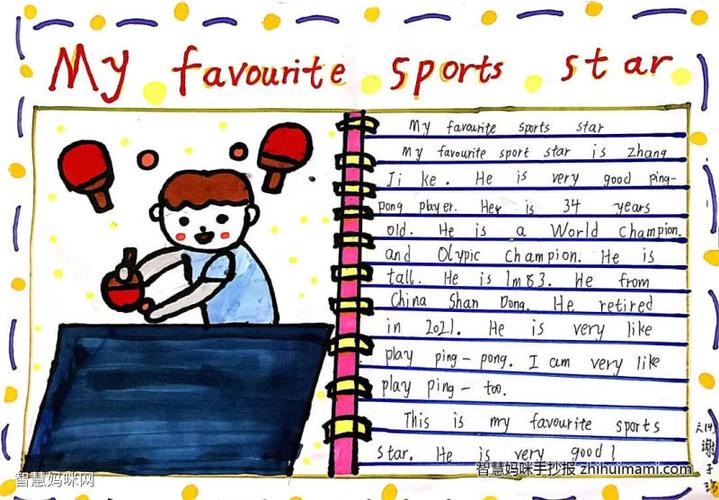 My favourite sports star
My favourite sports star
My favourite sport star is zhang
Ji ke. He is very good ping-
pong player. Her is 34 years
old. He is a World Champion.
and Olypic champion. He is
tall. He is 1m83. He from
China Shan Dong. He retired
in 2021. He is very like
play ping-pong. I am very like
play ping- too.
This is my favourite sports
star. He is very good!
智慧妈咪网
智慧妈咪手抄报 zhihuimami.com